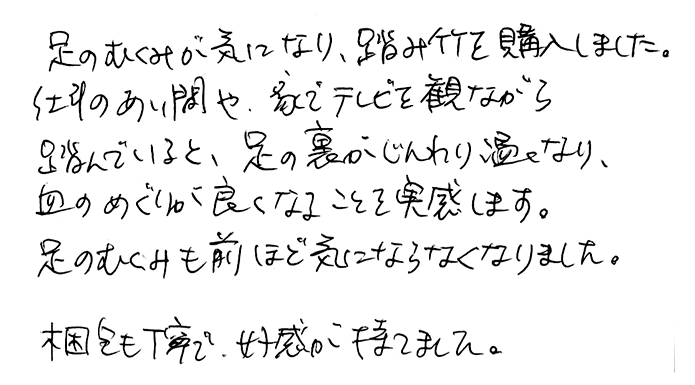 足のむくみが気になり、踏み竹を購入しました。
仕事のあい間や、家でテレビを観ながら
踏んでいると、足の裏がじんわり温くなり、
血のめぐりが良くなることを実感します。
足のむくみも前ほど気にならなくなりました。
梱包も丁寧で、好感が持てました。